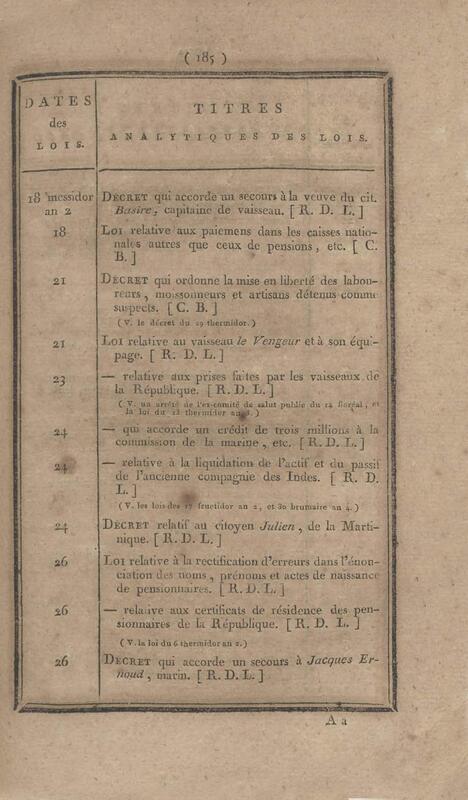 ( 185 )
DATES
des
LOIS.
TITRES
ANALYTIQUES DES LOIS.
18 messidor
an 2
DÉCRET qui accorde un secours à la veuve du cit.
Basire, capitaine de vaisseau. [ R. D. L. ]
18
LOI relative aux paiemens dans les caisses natio-
nales autres que ceux de pensions, etc. [ C.
B. ]
21
DÉCRET qui ordonne la mise en liberté des labou-
reurs, moissonneurs et artisans détenus comme
suspects. [ C. B. ]
(V. le décret du 29 thermidor.)
21
LOI relative au vaisseau le Vengeur et à son équi-
page. [ R. D. L. ]
23
— relative aux prises faites par les vaisseaux de
la République. [ R. D. L. ]
(V. un arrêté de l'ex-comité de salut public du 14 floréal, et
la loi du 18 thermidor an 3.)
24
— qui accorde un crédit de trois millions à la
commission de la marine, etc. [ R. D. L. ]
24
— relative à la liquidation de l'actif et du passif
de l'ancienne compagnie des Indes. [ R. D.
L. ]
(V. les lois des 17 fructidor an 2, et 30 brumaire an 4.)
24
DÉCRET relatif au citoyen Julien, de la Marti-
nique. [ R. D. L. ]
26
LOI relative à la rectification d'erreurs dans l'énon-
ciation des noms, prénoms et actes de naissance
de pensionnaires. [ R. D. L. ]
26
— relative aux certificats de résidence des pen-
sionnaires de la République. [ R. D. L. ]
(V. la loi du 6 thermidor an 2.)
26
DÉCRET qui accorde un secours à Jacques Er-
noud, marin. [ R. D. L. ]
A a